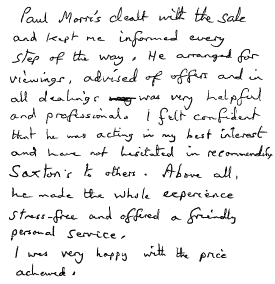 Paul Morris dealt with the sale
and kept me informed every
step of the way. He arranged for
viewings, advised of offers and in
all dealings was very helpful
and professional. I felt confident
that he was acting in my best interest
and have not hesitated in recommending
Saxton's to others. Above all,
he made the whole experience
stress-free and offered a friendly
personal service.
I was very happy with the price
achieved.